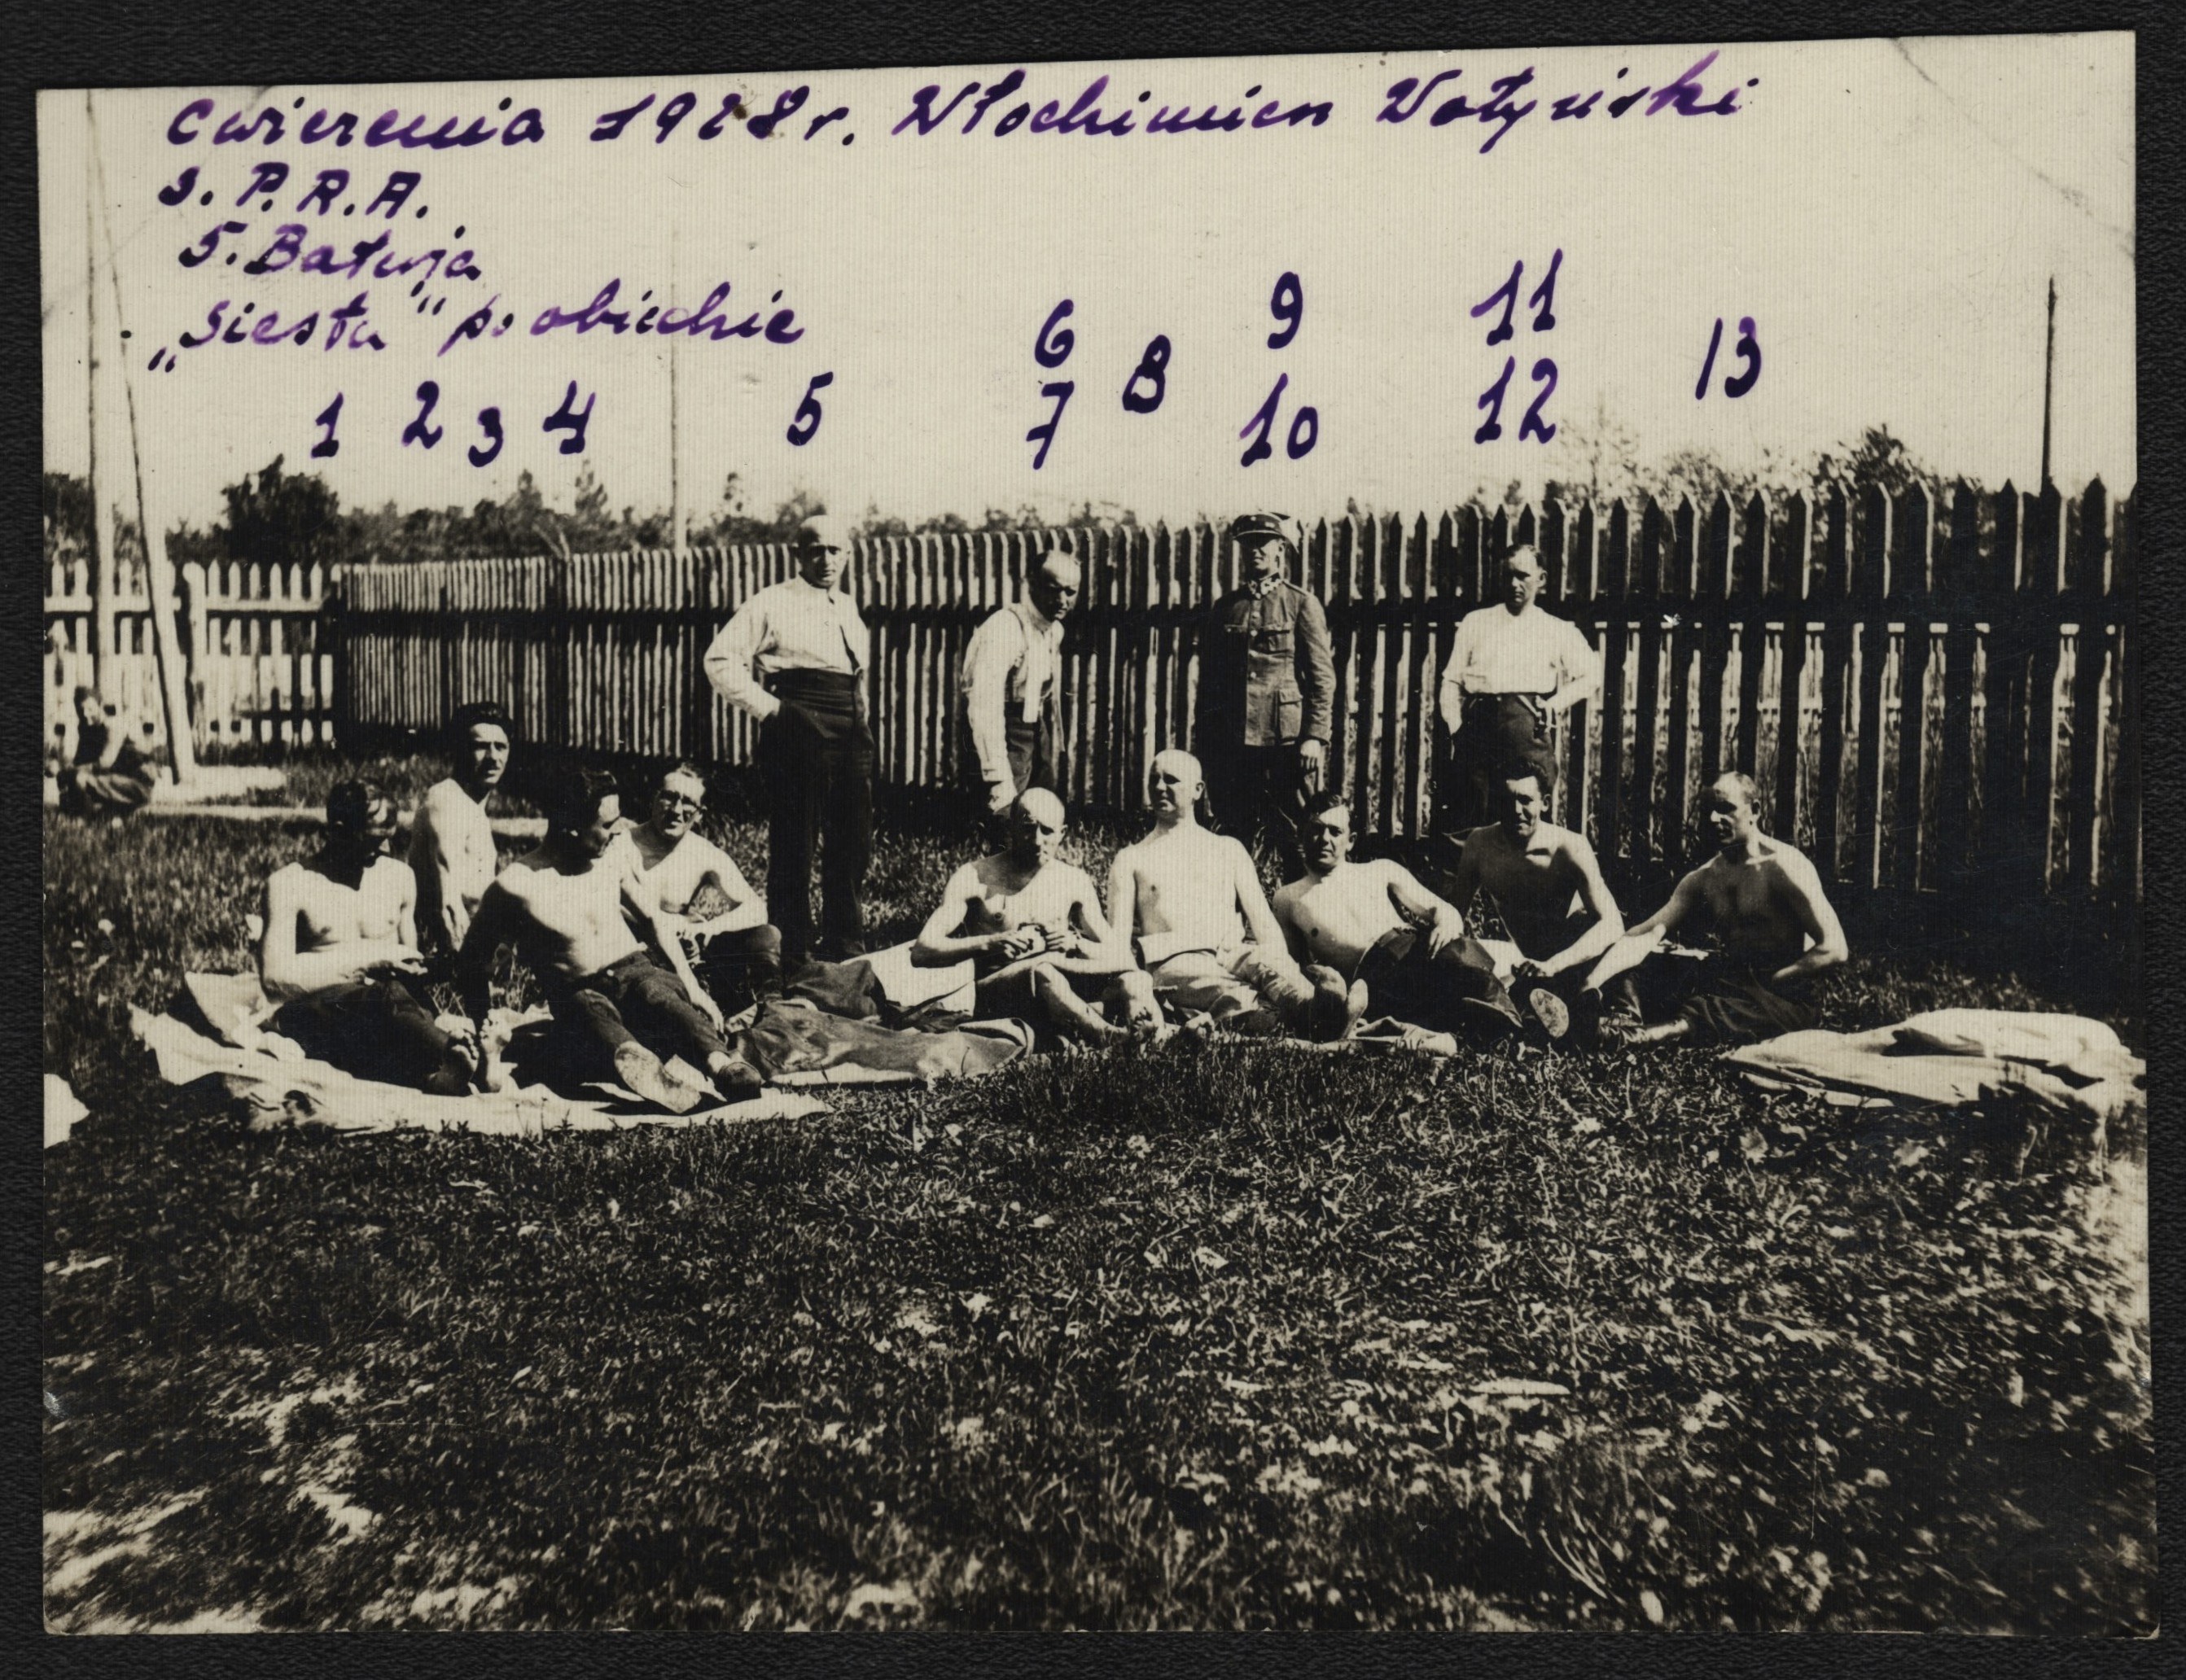 Ćwiczenia 1928 r. Włodzimierz Wołyński
3. P.R.A.
5. Baterja
„Siesta" po obiedzie
6 9 11
8 13
1 2 3 4 5 7 10 12